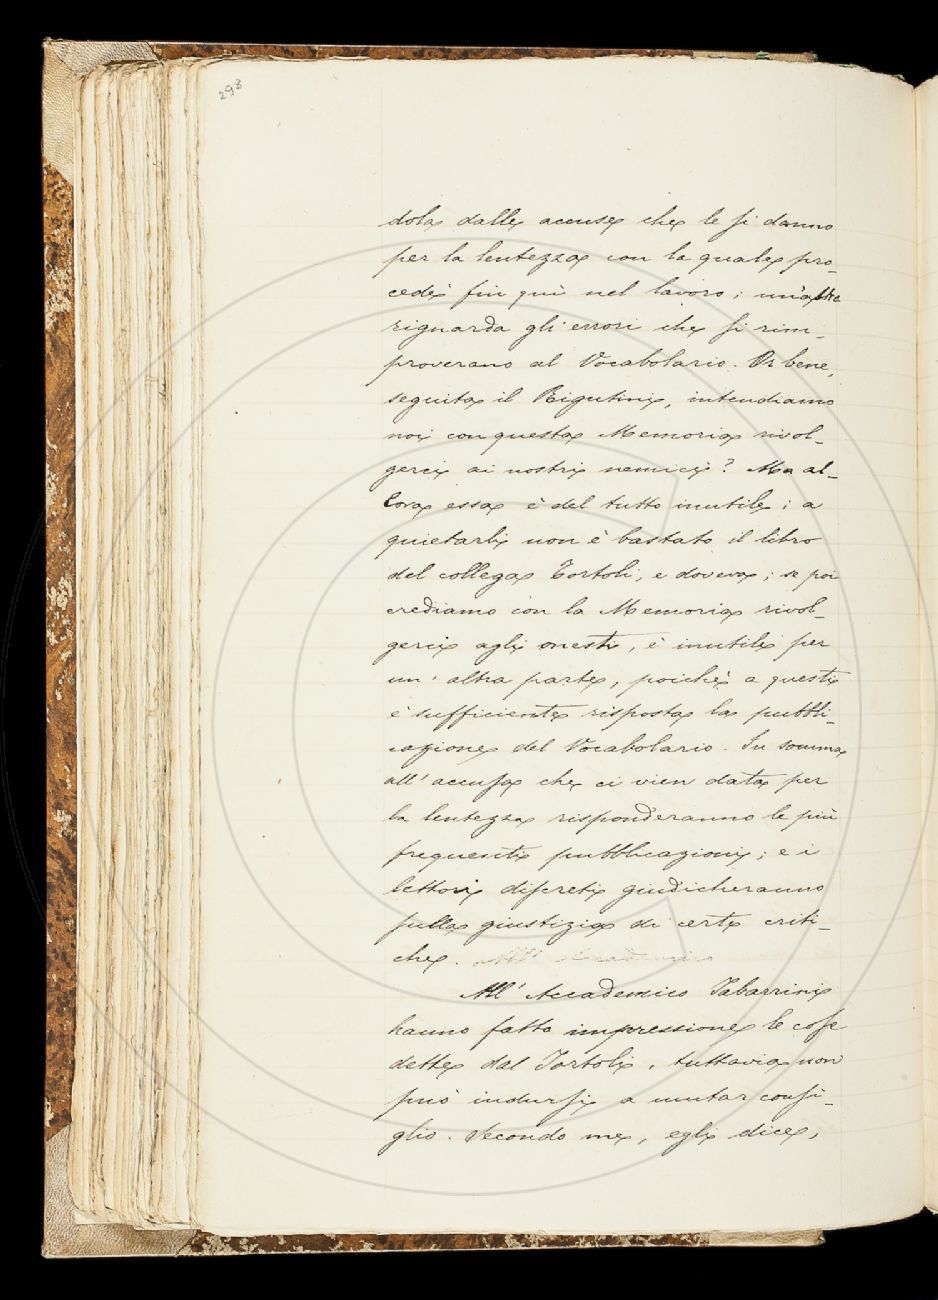 298
dola dalle accuse che le si danno
per la lentezza con la quale pro-
cedè fin quì nel lavoro; un'altra
riguarda gli errori che si rim-
proverano al Vocabolario. Or bene,
seguita il Rigutini, intendiamo
noi con questa Memoria rivol-
gerci ai nostri nemici? Ma al-
lora essa è del tutto inutile; a
quietarli non è bastato il libro
del collega Tortoli, e doveva; se poi
crediamo con la Memoria rivol-
gerci agli onesti, è inutile per
un' altra parte, poichè a questi
è sufficiente risposta la pubbli-
cazione del Vocabolario. In somma
all' accusa che ci vien data per
la lentezza risponderanno le più
frequenti pubblicazioni; e i
lettori discreti giudicheranno
sulla giustizia di certe criti-
che.
All' Accademico Tabarrini
hanno fatto impressione le cose
dette dal Tortoli, tuttavia non
può indursi a mutar consi-
glio. Secondo me, egli dice,